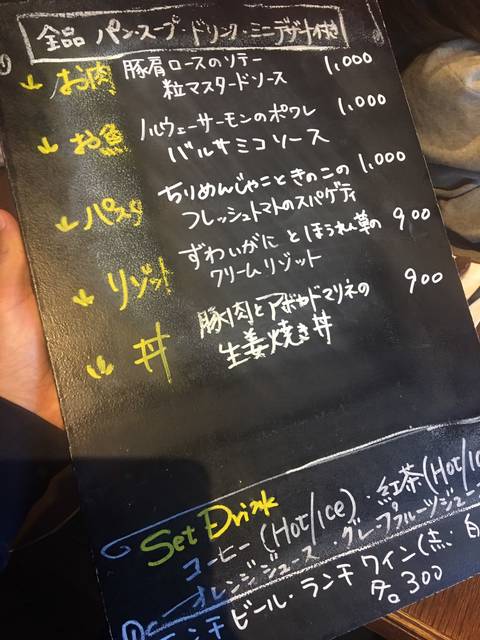 全品 パン・スープ・ドリンク・ミニデザート付き
お肉 豚肩ロースのソテー 1,000
粒マスタードソース
お魚 ノルウェーサーモンのポワレ 1,000
バルサミコソース
パスタ ちりめんじゃこときのこの 1,000
フレッシュトマトのスパゲティ
リゾット ずわいがにとほうれん草の 900
クリームリゾット
丼 豚肉とアボカドマリネの 900
生姜焼き丼
Set Drink
コーヒー (Hot/Ice)・紅茶(Hot/Ice
オレンジジュース・グレープフルーツジュー
ランチビール・ランチワイン(赤・白
各300